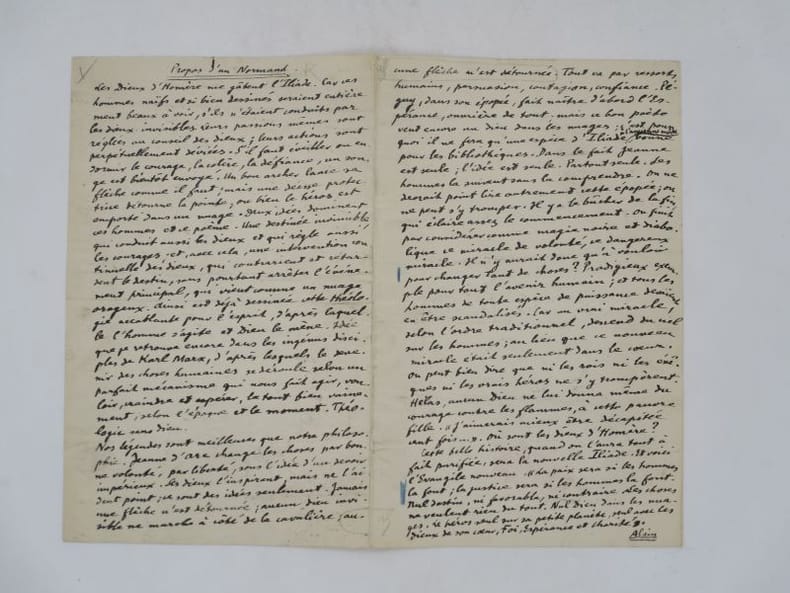 Propos d'un Normand
Les Dieux d'Homère me gâtent l'Iliade. Car ces
hommes naïfs et si bien dessinés seraient entière
ment beaux à voir, s'ils n'étaient conduits par
les dieux invisibles. Leurs passions mêmes sont
réglées au conseil des dieux ; leurs actions sont
perpétuellement déviées. S'il faut éveiller ou en
dormir le courage, la colère, la défiance, un son
ge est bientôt envoyé. Un bon archer lance sa
flèche comme il faut ; mais une déesse protec
trice détourne la pointe ; ou bien le héros est
emporté dans un nuage. Deux idées dominent
ces hommes et ce poème. Une destinée invincible
qui conduit aussi les dieux et qui règle aussi
les courages ; et, avec cela, une intervention con
tinuelle des dieux, qui contrarient et retar-
dent le destin, sans pourtant arrêter l'événe-
ment principal, qui vient comme un nuage
orageux. Ainsi est déjà dessinée cette théolo-
gie accablante pour l'esprit, d'après laquel-
le l'homme s'agite et Dieu le mène. Idée
que je retrouve encore dans les ingénus disci-
ples de Karl Marx, d'après lesquels le deve-
nir des choses humaines se déroule selon un
parfait mécanisme qui nous fait agir, vou-
loir, craindre et espérer, le tout bien vaine-
ment, selon l'époque et le moment. Théo-
logie sans dieu.
Nos légendes sont meilleures que notre philoso-
phie. Jeanne d'Arc change les choses par bon-
ne volonté, par liberté, sous l'idée d'un devoir
impérieux. Les dieux l'inspirent mais ne l'ai
dent point ; ce sont des idées seulement. Jamais
une flèche n'est détournée ; aucun dieu invi-
sible ne marche à côté de la cavalière ; au-
cune flèche n'est détournée. Tout va par ressorts
humains, persuasion, contagion, confiance. Pé-
guy, dans son épopée, fait naître d'abord l'Es-
pérance, ouvrière de tout. mais ce bon poète
veut encore un dieu dans les nuages ; c'est pour
quoi il ne fera qu'une espèce d'Iliade, bonne
pour les bibliothèques. Dans le fait Jeanne
est seule ; l'idée est seule. Partout seule. Les
hommes la suivent sans la comprendre. On ne
devrait point lire autrement cette épopée ; on
ne peut s'y tromper. Il y a le bûcher de la fin,
qui éclaire assez le commencement. On finit
par considérer comme magie noire et diabo-
lique ce miracle de volonté, ce dangereux
miracle. Il n'y aurait donc qu'à vouloir
pour changer tant de choses ? Prodigieux exem
ple pour tout l'avenir humain ; et tous les
hommes de toute espèce de puissance devaient
en être scandalisés. Car un vrai miracle,
selon l'ordre traditionnel, descend du ciel
sur les hommes ; au lieu que ce nouveau
miracle était seulement dans le cœur.
On peut bien dire que ni les rois ni les évê-
ques ni les vrais héros ne s'y trompèrent.
Hélas, aucun dieu ne lui donna même du
courage contre les flammes, à cette pauvre
fille. « J'aimerais mieux être décapitée
cent fois... ». Où sont les dieux d'Homère ?
Cette belle histoire, quand on l'aura tout à
fait purifiée, sera la nouvelle Iliade. Et voici
l'Evangile nouveau. « La paix sera si les hommes
la font ; la justice sera si les hommes la font.
Nul destin, ni favorable, ni contraire. Les choses
ne veulent rien du tout. Nul Dieu dans les nua-
ges. Le héros seul sur sa petite planète, seul avec les
dieux de son cœur, Foi, Espérance et Charité ».
Alain